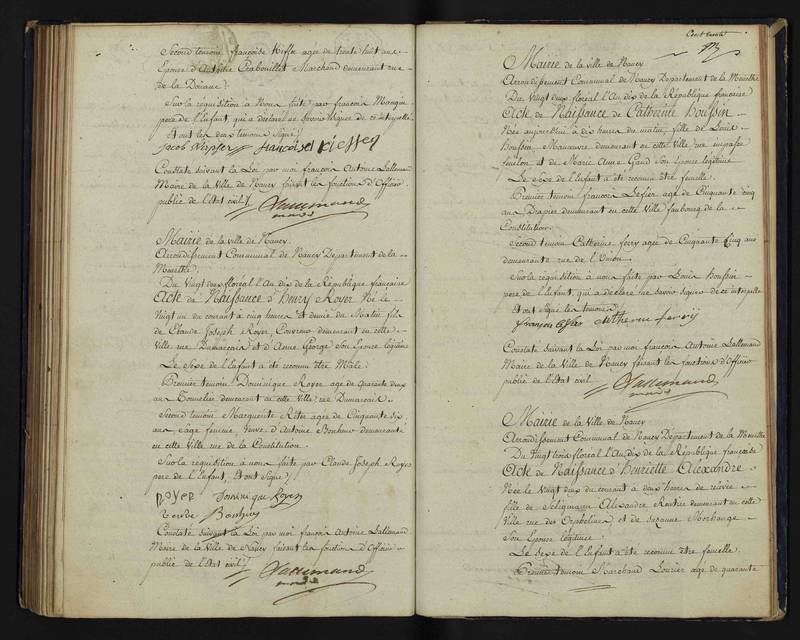 Second temoin françoise Kiffer agée de trente huit ans
Epouse d'Antoine Crabouillet Marchand demeurant rue
de la Douane.
Sur la requisition à Nous faite par françois Mangin
pere de l'Enfant, qui a déclaré ne savoir signer de ce interpellé
Et ont les deux temoins signé.
Constaté suivant la Loi par moi françois Antoine Lallemand
Maire de la Ville de Nancy faisant les fonctions d'Officier
public de l'Etat civil.
Lallemand
Mairie de la ville de Nancy
Arrondissement Communal de Nancy Departement de la
Meurthe.
Du Vingt deux floréal l'An dix de la République française
Acte de Naissance d'Henry Royer Né le
Vingt un du courant à cinq heures et demie du Matin fils
de Claude Joseph Royer, Couvreur demeurant en cette
Ville rue et d'Anne George son Epouse légitime
Le Sexe de l'Enfant a été reconnu être Mâle.
Premier temoin Dominique Royer agé de quarante deux
ans Tonnelier demeurant en cette Ville rue
Second temoin Marguerite agée de Cinquante six
ans Sage femme Veuve d'Antoine Bonheur demeurante
en cette Ville rue de la Constitution.
Sur la réquisition à nous faite par Claude Joseph Royer
pere de l'Enfant, Et ont signé.
ROYER Dominique Royer
Constaté suivant la Loi par moi françois Antoine Lallemand
Maire de la Ville de Nancy faisant les fonctions d'Officier
public de l'Etat civil.
Lallemand
Cent trente
Mairie de la ville de Nancy
Arrondissement Communal de Nancy Departement de la Meurthe
Du Vingt deux floréal l'An dix de la République françaises
Acte de Naissance de Catherine Boussin
Née aujourd'hui à dix heures du matin, fille de Louis
Boussin, Manœuvre demeurant en cette Ville rue impasse
fenelon et de Marie Anne Gand Son Epouse légitime
Le Sexe de l'Enfant a été reconnu être femelle.
Premier temoin françois agé de Cinquante cinq
ans Drapier demeurant en cette Ville faubourg de la
Constitution.
Second temoin Catherine ferry agée de Cinquante Cinq ans
demeurante rue de l'Union.
Sur la réquisition à nous faite par Louis Boussin
pere de l'Enfant, qui a déclaré ne savoir signer de ce interpellé
Et ont signé les temoins.
Constaté suivant la Loi par moi françois Antoine Lallemand
Maire de la Ville de Nancy faisant les fonctions d'Officier
public de l'Etat civil.
Lallemand
Mairie de la Ville de Nancy
Arrondissement Communal de Nancy Departement de la Meurthe
Du Vingt trois floréal l'An dix de la République françaises
Acte de Naissance d'Henriette Alexandre
Née le Vingt deux du courant à deux heures de relevée
fille de Alexandre Rentier demeurant en cette
Ville rue des Orphelines et de Suzanne Morhange
Son Epouse légitime.
Le Sexe de l'Enfant a été reconnu être femelle.
Premier temoin Marchand Lourier agé de quarante